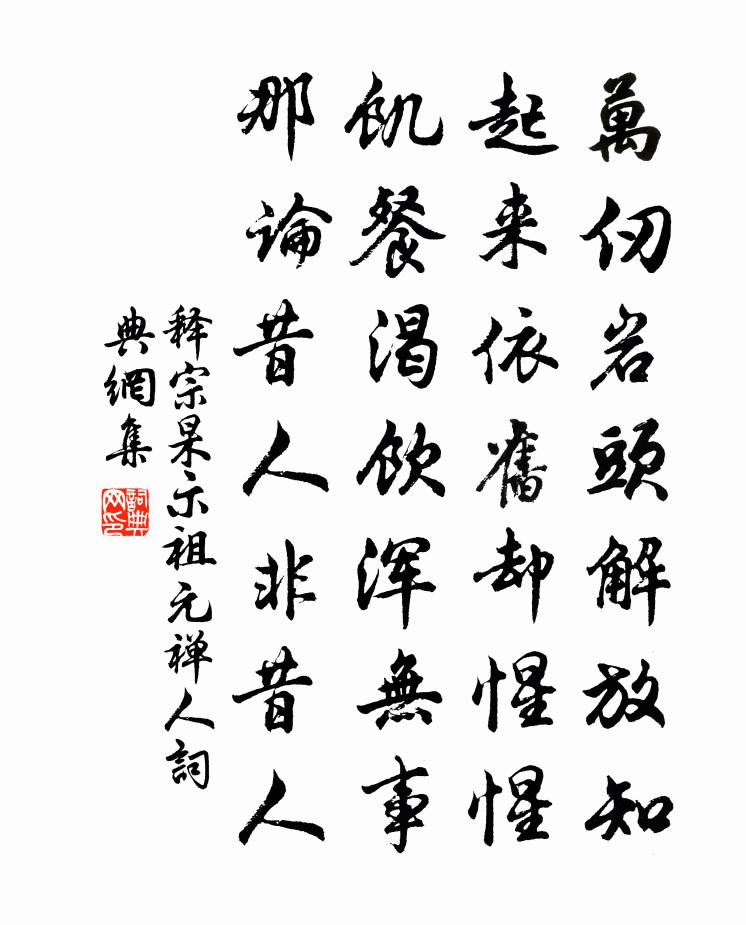 萬仞岩頭解放知
起来依舊却惺惺
飢餐渴飲浑無事
那論昔人非昔人
释宗杲示祖元禅人詞
典網集
詞典网印